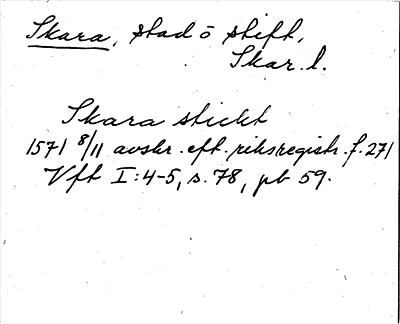 Skara, stad o stift,
Skar. l.
Skara stickt
1571 8/11 avskr. eft. riksregistr. f. 271
Vft I:4-5, s. 78, pb 59.